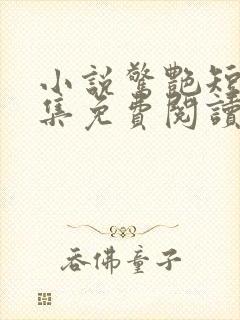 小說驚艷短
集免費閱讀
吞佛童子